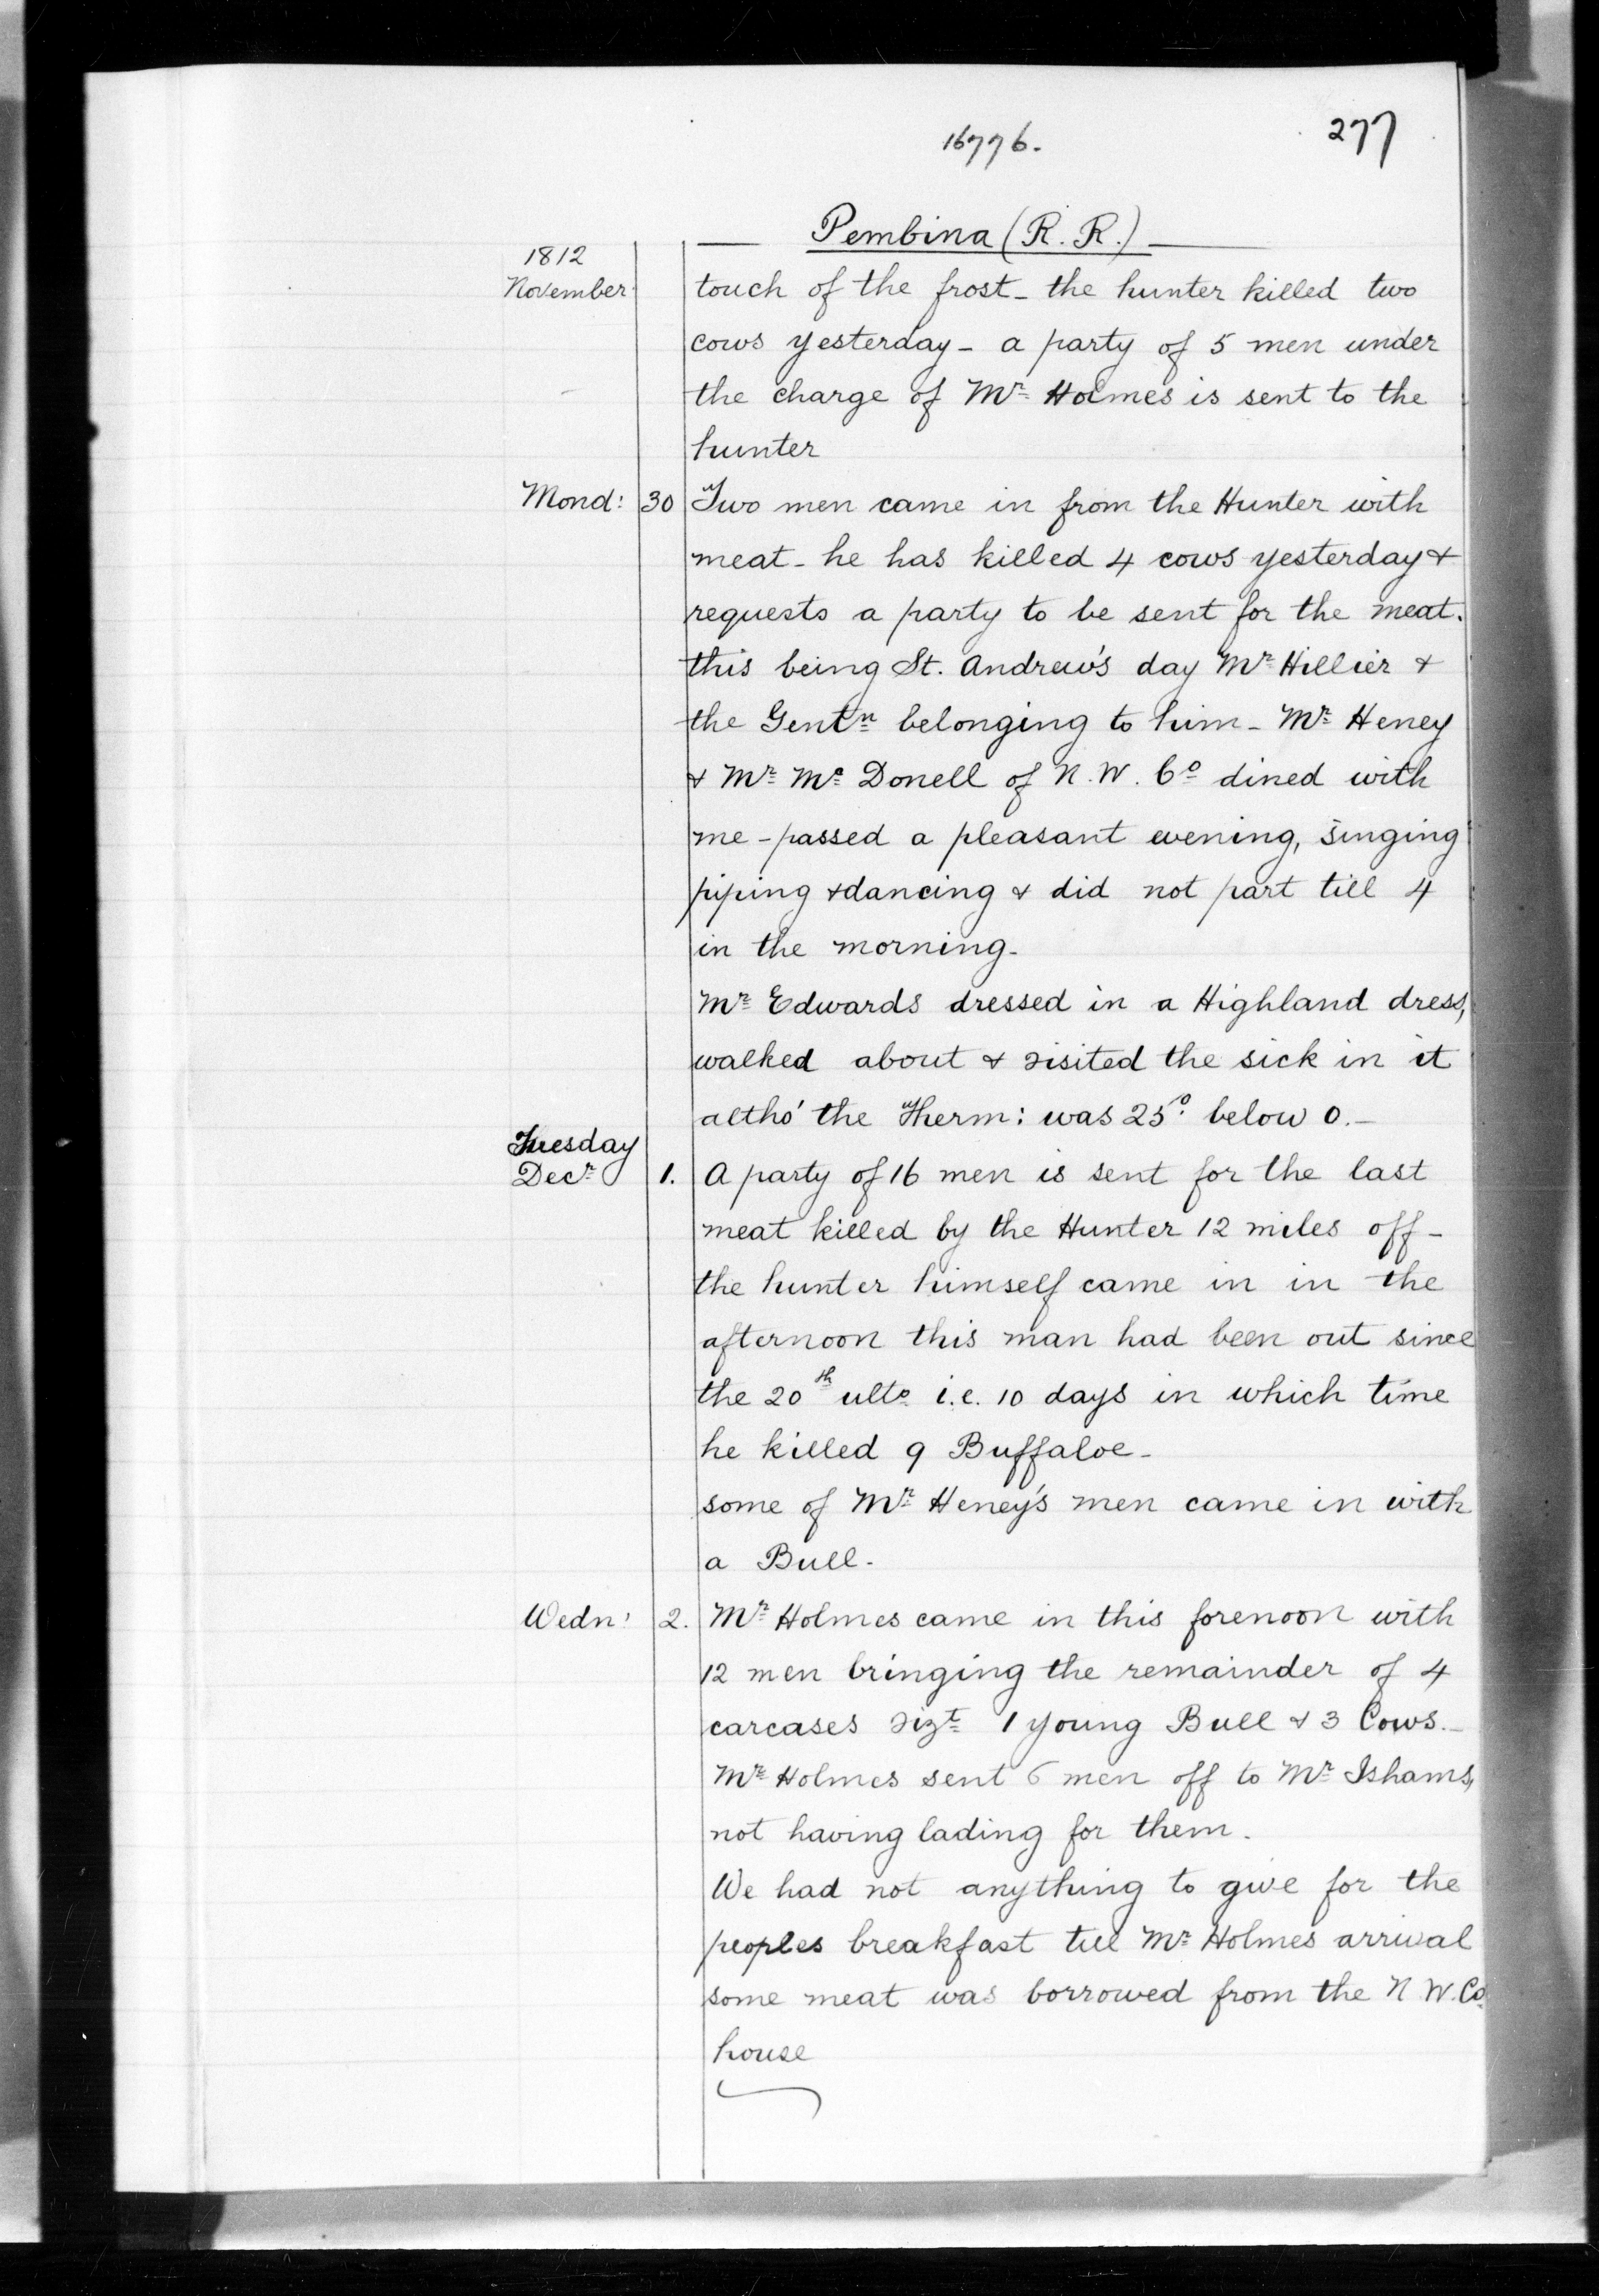 16776.
277
Pembina (R. R.)
1812
November
touch of the frost - the hunter killed two
cows yesterday - a party of 5 men under
the charge of Mr Holmes is sent to the
hunter
Mond: 30 Two men came in from the Hunter with
meat - he has killed 4 cows yesterday &
requests a party to be sent for the meat.
this being St. Andrew's day Mr Hillier &
the Gentn belonging to him - Mr Heney
& Mr Mc Donell of N. W. Co dined with
me - passed a pleasant evening, singing
piping & dancing & did not part till 4
in the morning -
Mr Edwards dressed in a Highland dress,
walked about & visited the sick in it
altho' the Therm: was 25° below 0. -
Tuesday
Decr 1. A party of 16 men is sent for the last
meat killed by the Hunter 12 miles off -
the hunter himself came in in the
afternoon this man had been out since
the 20th ulto i.e. 10 days in which time
he killed 9 Buffaloe -
some of Mr Heney's men came in with
a Bull -
Wedn: 2. Mr Holmes came in this forenoon with
12 men bringing the remainder of 4
carcases vizt 1 young Bull & 3 Cows. -
Mr Holmes sent 6 men off to Mr Ishams,
not having lading for them.
We had not anything to give for the
peoples breakfast till Mr Holmes arrival
some meat was borrowed from the N. W. Co
house